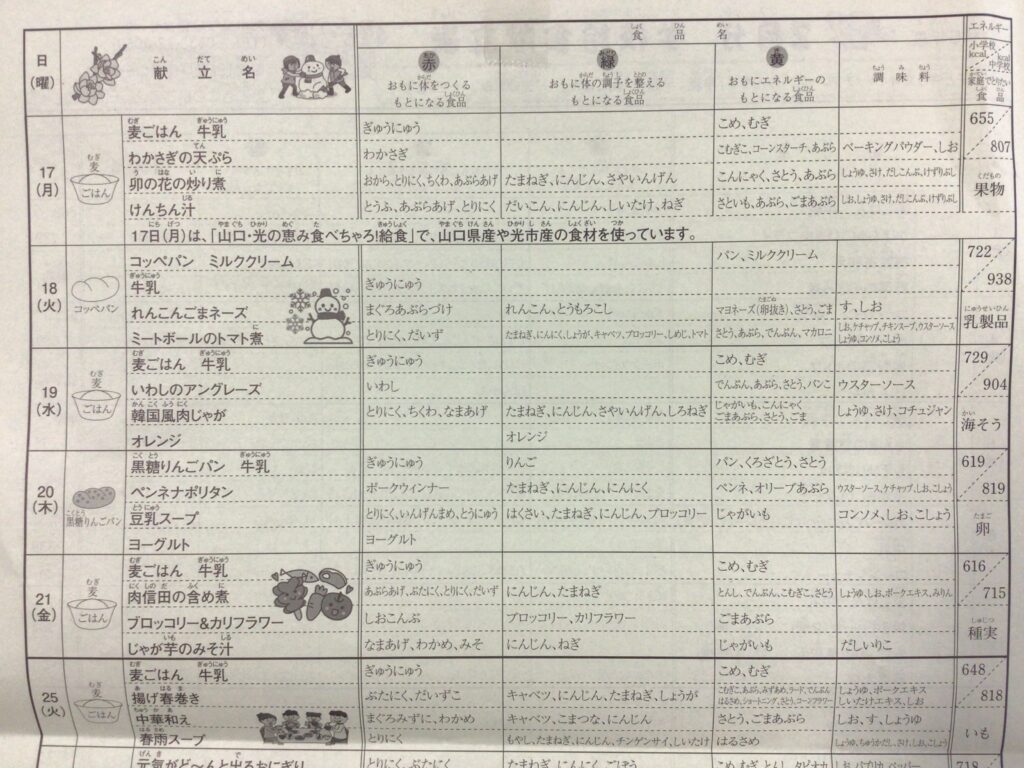 日(曜) 献立名 食品名 エネルギー
赤 おもに体をつくるもとになる食品
緑 おもに体の調子を整えるもとになる食品
黄 おもにエネルギーのもとになる食品
調味料
小学校 kcal 中学校 kcal
家庭でとりたい食品
17(月) 麦ごはん
麦ごはん 牛乳 ぎゅうにゅう こめ、むぎ 655
わかさぎの天ぷら わかさぎ こむぎこ、コーンスターチ、あぶら ベーキングパウダー、しお 807
卯の花の炒り煮 おから、とりにく、ちくわ、あぶらあげ たまねぎ、にんじん、さやいんげん こんにゃく、さとう、あぶら しょうゆ、さけ、だしこんぶ、けずりぶし 果物
けんちん汁 とうふ、あぶらあげ、とりにく だいこん、にんじん、しいたけ、ねぎ さといも、あぶら、ごまあぶら しお、しょうゆ、さけ、だしこんぶ、けずりぶし
17日(月)は、「山口・光の恵み食べちゃろ!給食」で、山口県産や光市産の食材を使っています。
18(火) コッペパン
コッペパン ミルククリーム パン、ミルククリーム 722
牛乳 ぎゅうにゅう 938
れんこんごまネーズ まぐろあぶらづけ れんこん、とうもろこし マヨネーズ(卵抜き)、さとう、ごま す、しお 乳製品
ミートボールのトマト煮 とりにく、だいず たまねぎ、にんにく、しょうが、キャベツ、ブロッコリー、しめじ、トマト さとう、あぶら、でんぷん、マカロニ しお、ケチャップ、チキンスープ、ウスターソース
しょうゆ、コンソメ、こしょう
19(水) 麦ごはん
麦ごはん 牛乳 ぎゅうにゅう こめ、むぎ 729
いわしのアングレーズ いわし でんぷん、あぶら、さとう、パンこ ウスターソース 904
韓国風肉じゃが とりにく、ちくわ、なまあげ たまねぎ、にんじん、さやいんげん、しろねぎ じゃがいも、こんにゃく しょうゆ、さけ、コチュジャン 海そう
ごまあぶら、さとう、ごま
オレンジ オレンジ
20(木) 黒糖りんごパン
黒糖りんごパン 牛乳 ぎゅうにゅう りんご パン、くろざとう、さとう 619
ペンネナポリタン ポークウィンナー たまねぎ、にんじん、にんにく ペンネ、オリーブあぶら ウスターソース、ケチャップ、しお、こしょう 819
豆乳スープ とりにく、いんげんまめ、とうにゅう はくさい、たまねぎ、にんじん、ブロッコリー じゃがいも コンソメ、しお、こしょう 卵
ヨーグルト ヨーグルト
21(金) 麦ごはん
麦ごはん 牛乳 ぎゅうにゅう こめ、むぎ 616
肉信田の含め煮 あぶらあげ、ぶたにく、とりにく、だいず にんじん、たまねぎ とんし、でんぷん、こむぎこ、さとう しょうゆ、しお、ポークエキス、みりん 715
ブロッコリー&カリフラワー しおこんぶ ブロッコリー、カリフラワー ごまあぶら 種実
じゃが芋のみそ汁 なまあげ、わかめ、みそ にんじん、ねぎ じゃがいも だしいりこ
25(火) 麦ごはん
麦ごはん 牛乳 ぎゅうにゅう こめ、むぎ 648
揚げ春巻き ぶたにく、だいずこ キャベツ、にんじん、たまねぎ、しょうが こむぎこ、あぶら、みずあめ、ラード、でんぷん しょうゆ、ポークエキス 818
はるさめ、ショートニング、さとう、コーンフラワー しいたけエキス、しお
中華和え まぐろみずに、わかめ キャベツ、こまつな、にんじん さとう、ごまあぶら しお、す、しょうゆ いも
春雨スープ とりにく もやし、たまねぎ、にんじん、チンゲンサイ、しいたけ はるさめ しょうゆ、ちゅうかだし、さけ、しお、こしょう
元気がど〜んと出るおにぎり とりにく、ぶたにく たまねぎ、にんじん、ごぼう 718